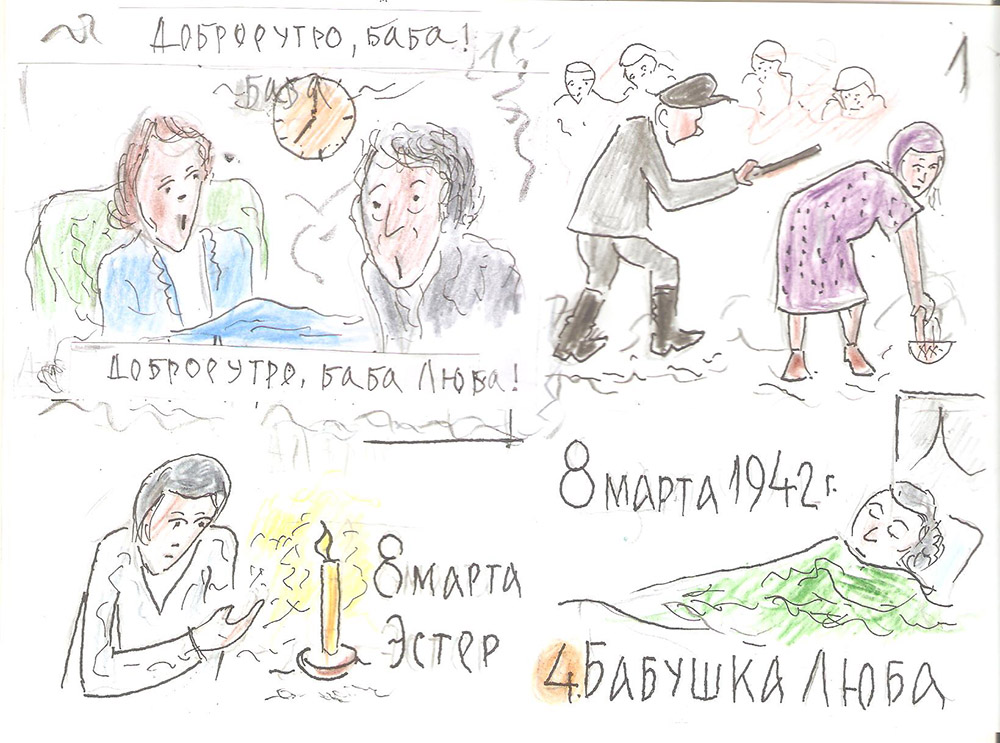 ДОБРОЕ УТРО, БАБА!
1
БАБА
ДОБРОЕ УТРО, БАБА ЛЮБА!
8 МАРТА 1942 г.
8 МАРТА
ЭСТЕР
4. БАБУШКА ЛЮБА